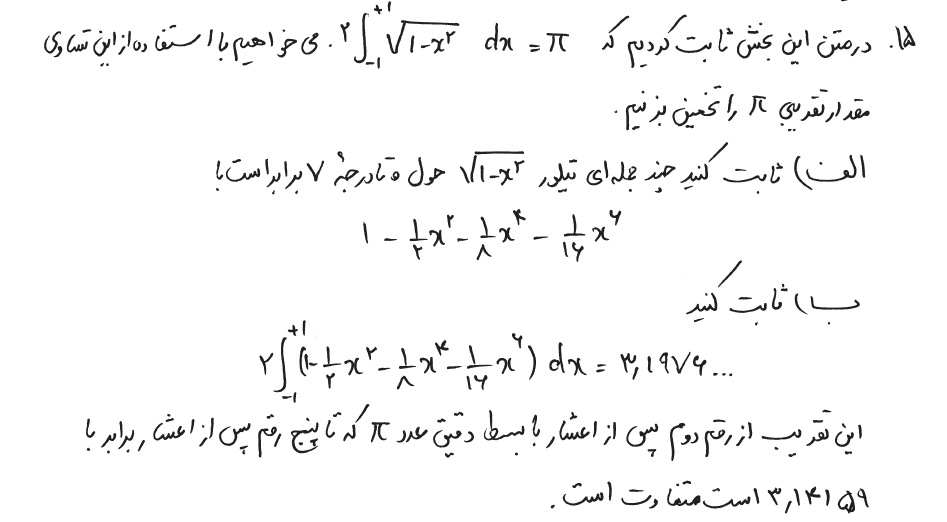 ۱۵. در متن این بخش ثابت کردیم که ۲∫₋₁⁺¹ √(۱-x²) dx = π. می خواهیم با استفاده از این تساوی
مقدار تقریبی π را تخمین بزنیم.
الف) ثابت کنید چند جمله‌ای تیلور √(۱-x²) حول ۰ تا درجهٔ ۷ برابر است با
۱ - ۱/۲ x² - ۱/۸ x⁴ - ۱/۱۶ x⁶
ب) ثابت کنید
۲∫₋₁⁺¹ (۱ - ۱/۲ x² - ۱/۸ x⁴ - ۱/۱۶ x⁶) dx = ۳,۱۹۷۶...
این تقریب از رقم دوم پس از اعشار با بسط دقیق عدد π که تا پنج رقم پس از اعشار برابر با
۳,۱۴۱۵۹ است متفاوت است.